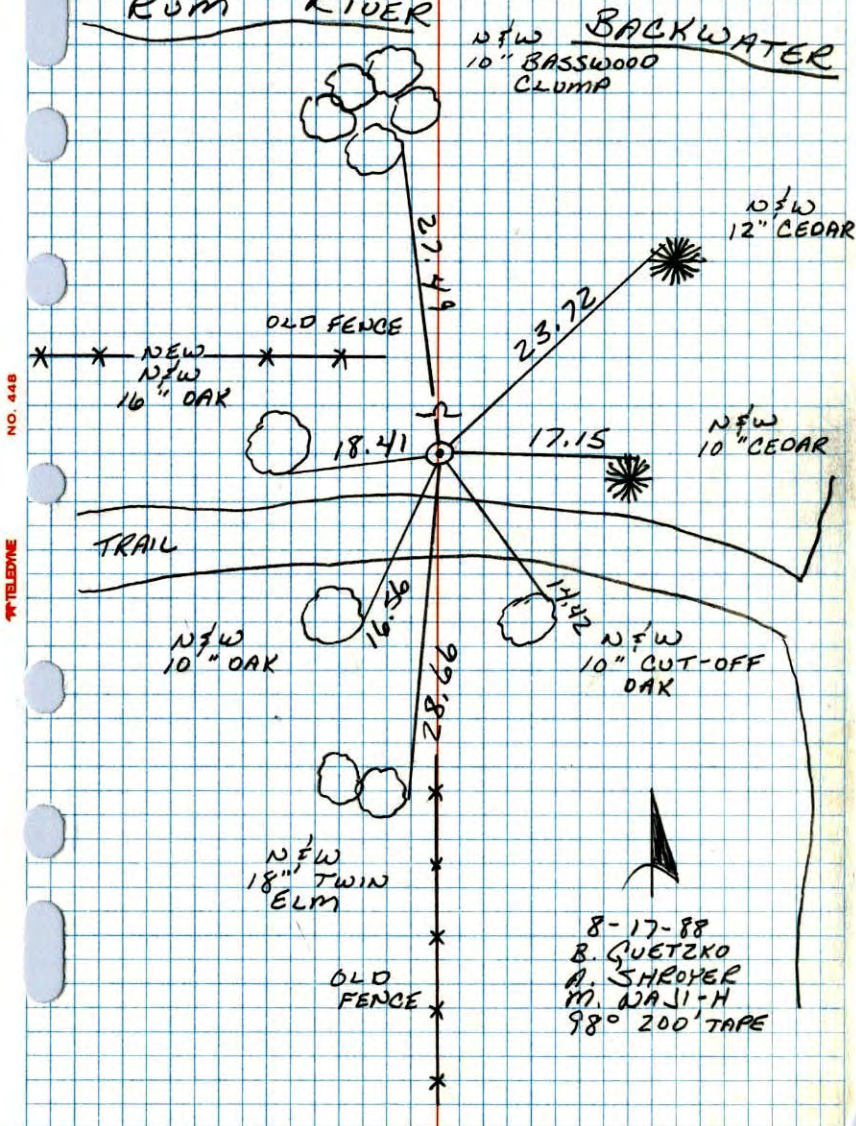 RUM RIVER
BACKWATER
N & W
10" BASSWOOD
CLUMP
N & W
12" CEDAR
27.49
23.72
OLD FENCE
NEW
N & W
16" OAK
18.41
17.15
N & W
10" CEDAR
NO. 448
TELEDYNE
TRAIL
16.56
14.42
N & W
10" OAK
N & W
10" CUT-OFF
OAK
28.99
N & W
18" TWIN
ELM
OLD
FENCE
8-17-88
B. GUETZKO
A. SHROYER
M. NAJI-H
98° 200' TAPE